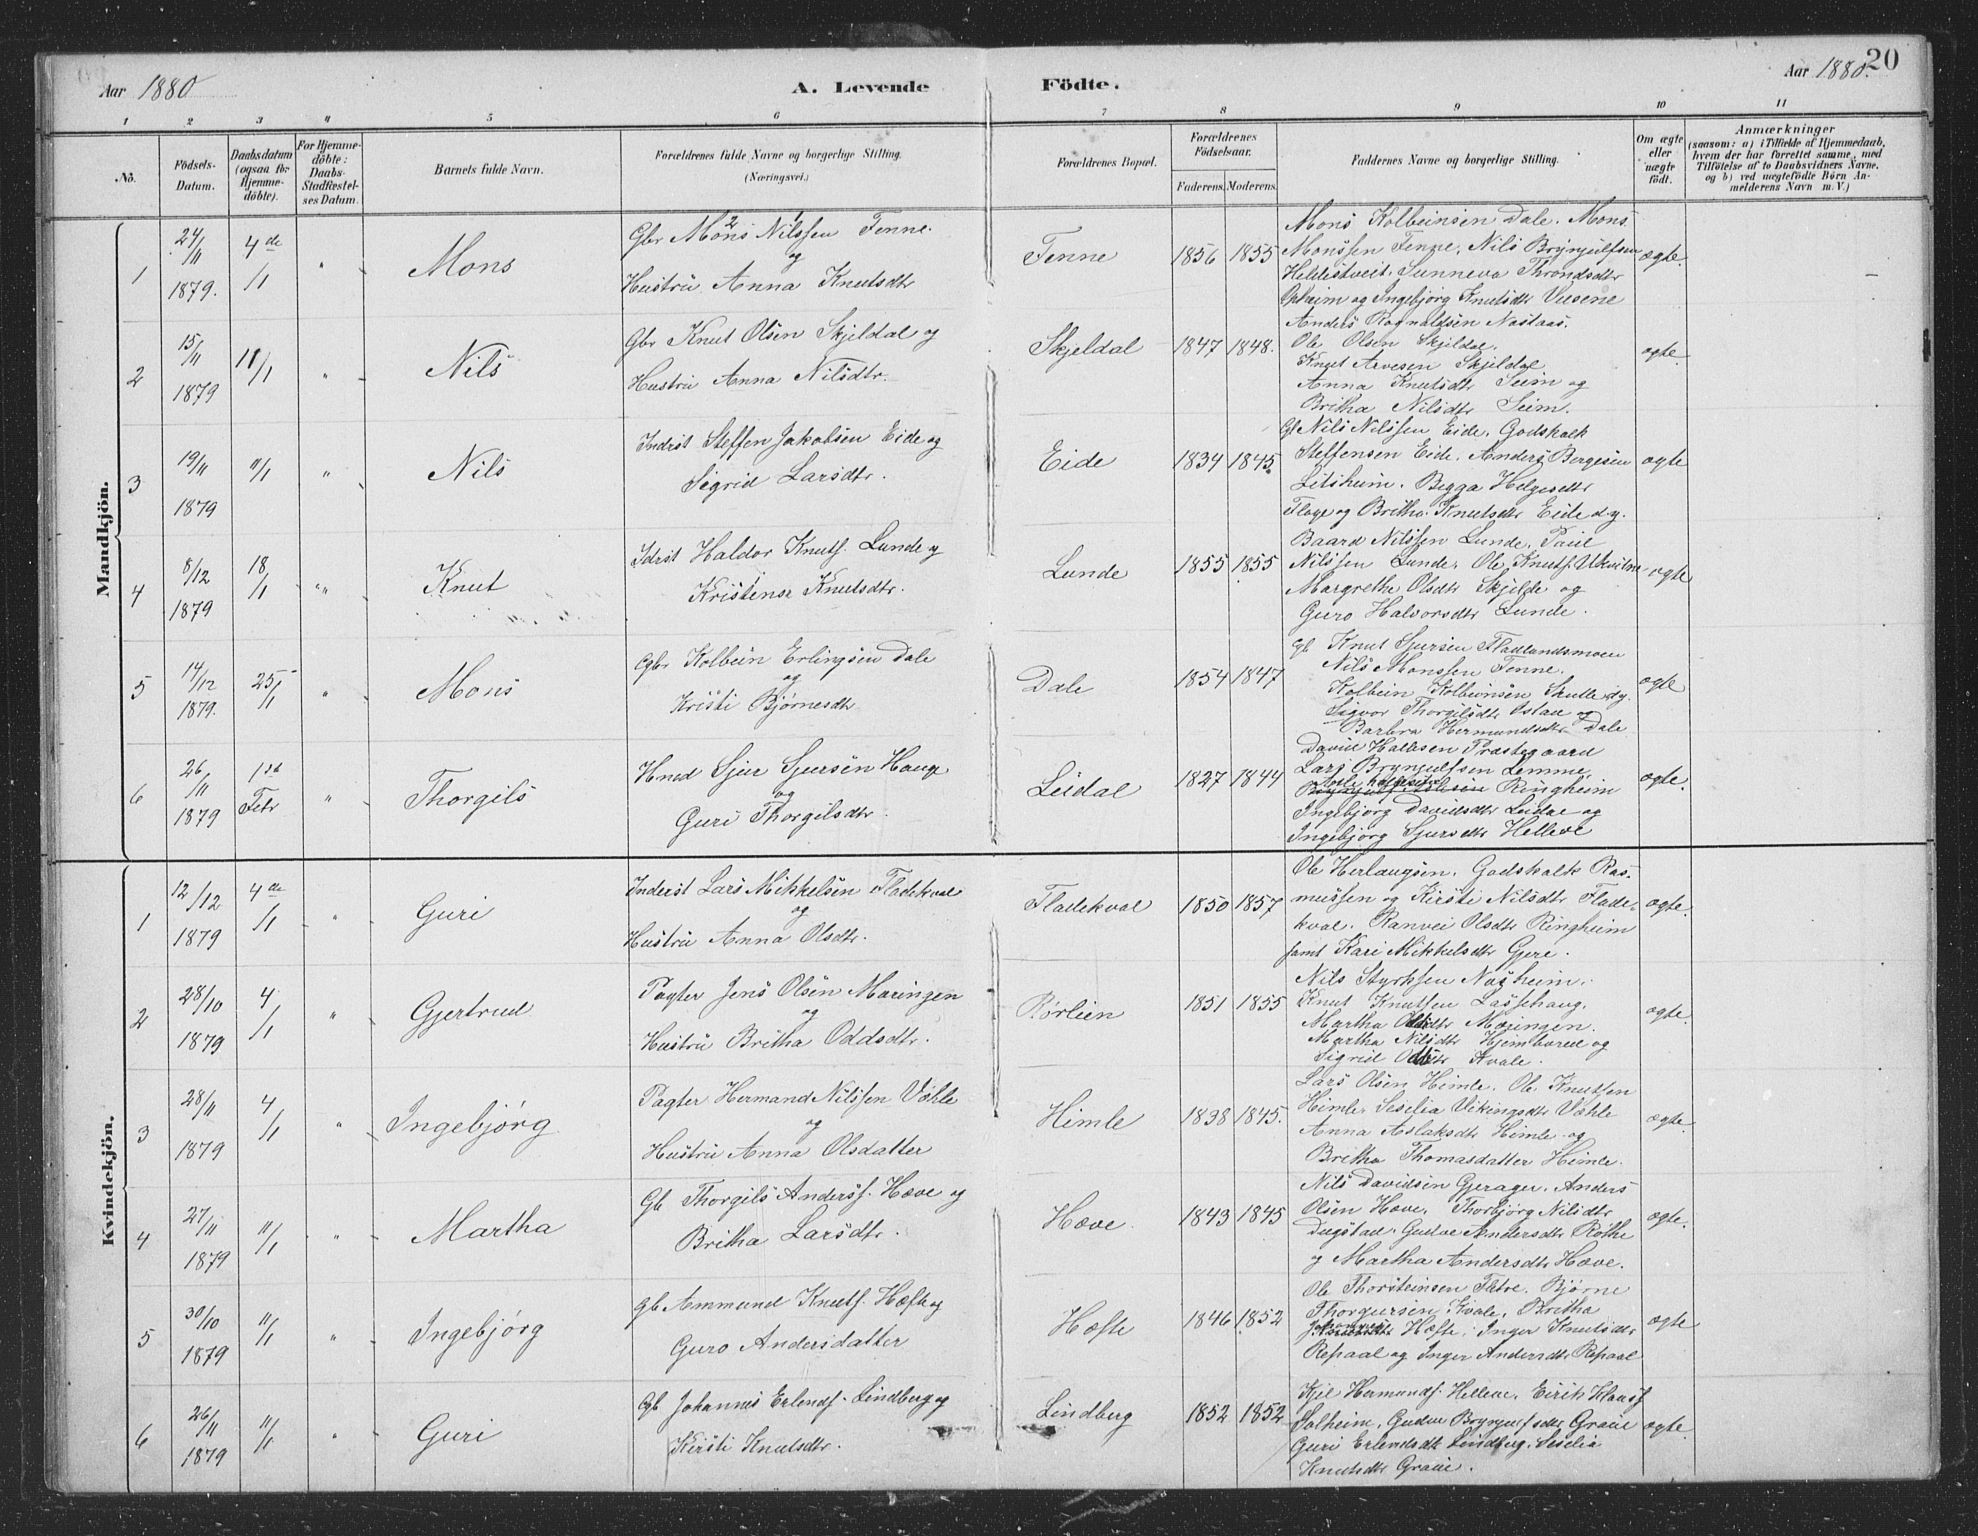 Aar 1880
A. Levende
Födte.
Aar 1880.
20
1 2 3 4 5 6 7 8 9 10 11
No.
Födsels-Datum.
Daabsdatum (ogsaa for Hjemme-döbte).
For Hjemme-döbte: Daabs-Stadfestel-ses Datum.
Barnets fulde Navn.
Forældrenes fulde Navne og borgerlige Stilling.
(Næringsvei.)
Forældrenes Bopæl.
Forældrenes Födselsaar.
Faderens. Moderens.
Faddernes Navne og borgerlige Stilling.
Om ægte eller uægte födt.
Anmærkninger
(saasom: a) i Tilfælde af Hjemmedaab, hvem der har forrettet samme, med Tilföielse af to Daabsvidners Navne, og b) ved uægtefödte Börn An-melderens Navn m. V.)
Mandkjön.
1
24/11 1879.
4de /1
"
Mons
Gbr Mons Nilssen Tenne
og
Hustru Anna Knutsdtr
Tenne
1856 1855
Mons Kolbeinsen Dale. Mons
Monssen Tenne, Nils Brynjulfsen
Heldistveit. Sunneva Throndsdtr
Opheim og Ingebjørg Knutsdtr
ægte.
2
15/11 1879
11/1
"
Nils
Gbr Knut Olsen Skjeldal og
Hustru Anna Nilsdtr.
Skjeldal
1847 1848.
Anders Rognaldsen
Ole Olsen Skjeldal.
Knut Arvesen Skjeldal
Anna Knutsdtr Seim og
Britha Nilsdtr Seim.
ægte
3
19/11 1879
11/1
"
Nils
Indrst Steffen Jakobsen Eide og
Sigrid Larsdtr.
Eide
1834 1845.
Nils Nilssen Eide. Godskalk
Steffensen Eide. Anders Bergesen
Helgesdtr
og Britha Knutsdtr Eide
ægte
4
8/12 1879
18/1
"
Knut
Idrst Haldor Knuts. Lunde og
Knutsdtr.
Lunde
1855 1855
Baard Nilssen Lunde. Paul
Nilssen Lunde. Ole Knuts.
Margrethe Olsdtr Skjelde og
Guro Halvorsdtr Lunde.
ægte
5
14/12 1879.
25/1
"
Mons
Gbr Kolbein Erlingsen Dale
og
Kristi Bjørnesdtr
Dale
1854 1847
Gb Knut Sjursen Fladlandsmoen
Nils Monssen Tenne.
Kolbein Kolbeinsen Skutle
Sigvor Thorgilsdtr
Barbra Hermundsdtr Dale
ægte
6
26/11 1879
1ste Febr
"
Thorgils
Hmd Sjur Sjursen Hauge
og
Guri Thorgilsdtr.
Leidal
1827 1844
David Præstegaard
Lars Brynjulfsen Lemme.
Ringheim
Ingebjørg Davidsdtr Leidal og
Ingebjørg Sjursdtr Helleve
ægte.
Kvindekjön.
1
12/12 1879
4de /1
"
Guri
Inderst Lars Mikkelsen Fladekval
og
Hustru Anna Olsdtr.
Fladekval
1850 1857
Ole Herlaugsen. Godskalk Ras-
mussen og Kirsti Nilsdtr Flade-
kval. Ranvei Olsdtr Ringheim
samt Kari Mikkelsdtr Gjere.
ægte.
2
28/10 1879
4/1
"
Gjertrud
Pagter Jens Olsen Mæringen
og
Hustru Britha Oddsdtr.
Rørlien
1851 1855
Nils Styrksen
Knut Knutsen
Martha Mæringen.
Martha Nilsdtr og
Sigrid
ægte.
3
28/11 1879
4/1
"
Ingebjörg
Pagter Hermand Nilssen Væhle
og
Hustru Anna Olsdatter
Himle
1838 1845.
Lars Olsen Himle. Ole Knutsen
Himle. Sesilia Vikingsdtr Væhle
Anna Aslaksdtr Himle og
Britha Thomasdatter Himle.
ægte.
4
27/11 1879
11/1
"
Martha
Gb Thorgils Anders. Hæve og
Britha Larsdtr.
Hæve.
1843 1845
Nils Davidsen Gjerager. Anders
Olsen Hæve. Thorbjørg Nilsdtr
Dugstad. Gudve Andersdtr Röthe
og Martha Andersdtr Hæve.
ægte.
5
30/10 1879
11/1
"
Ingebjörg
Gb Ammund Knuts. Hæfte og
Guro Andersdatter
Hæfte
1846 1852
Ole Thorsteinsen Bjørne
Kvale. Britha
Hæfte. Inger Knutsdtr
Repaal og Inger Andersdtr Repaal
ægte
6
26/11 1879
11/1
"
Guri
Gb Johannes Erlends. Lindberg og
Kirsti Knutsdtr.
Lindberg
1852 1852
Hermunds. Helleve. Eirik
Gudve Brynjulfsdtr Graue
Guri Erlendsdtr Lindberg. Sesilia
Knutsdtr Graue.
ægte.